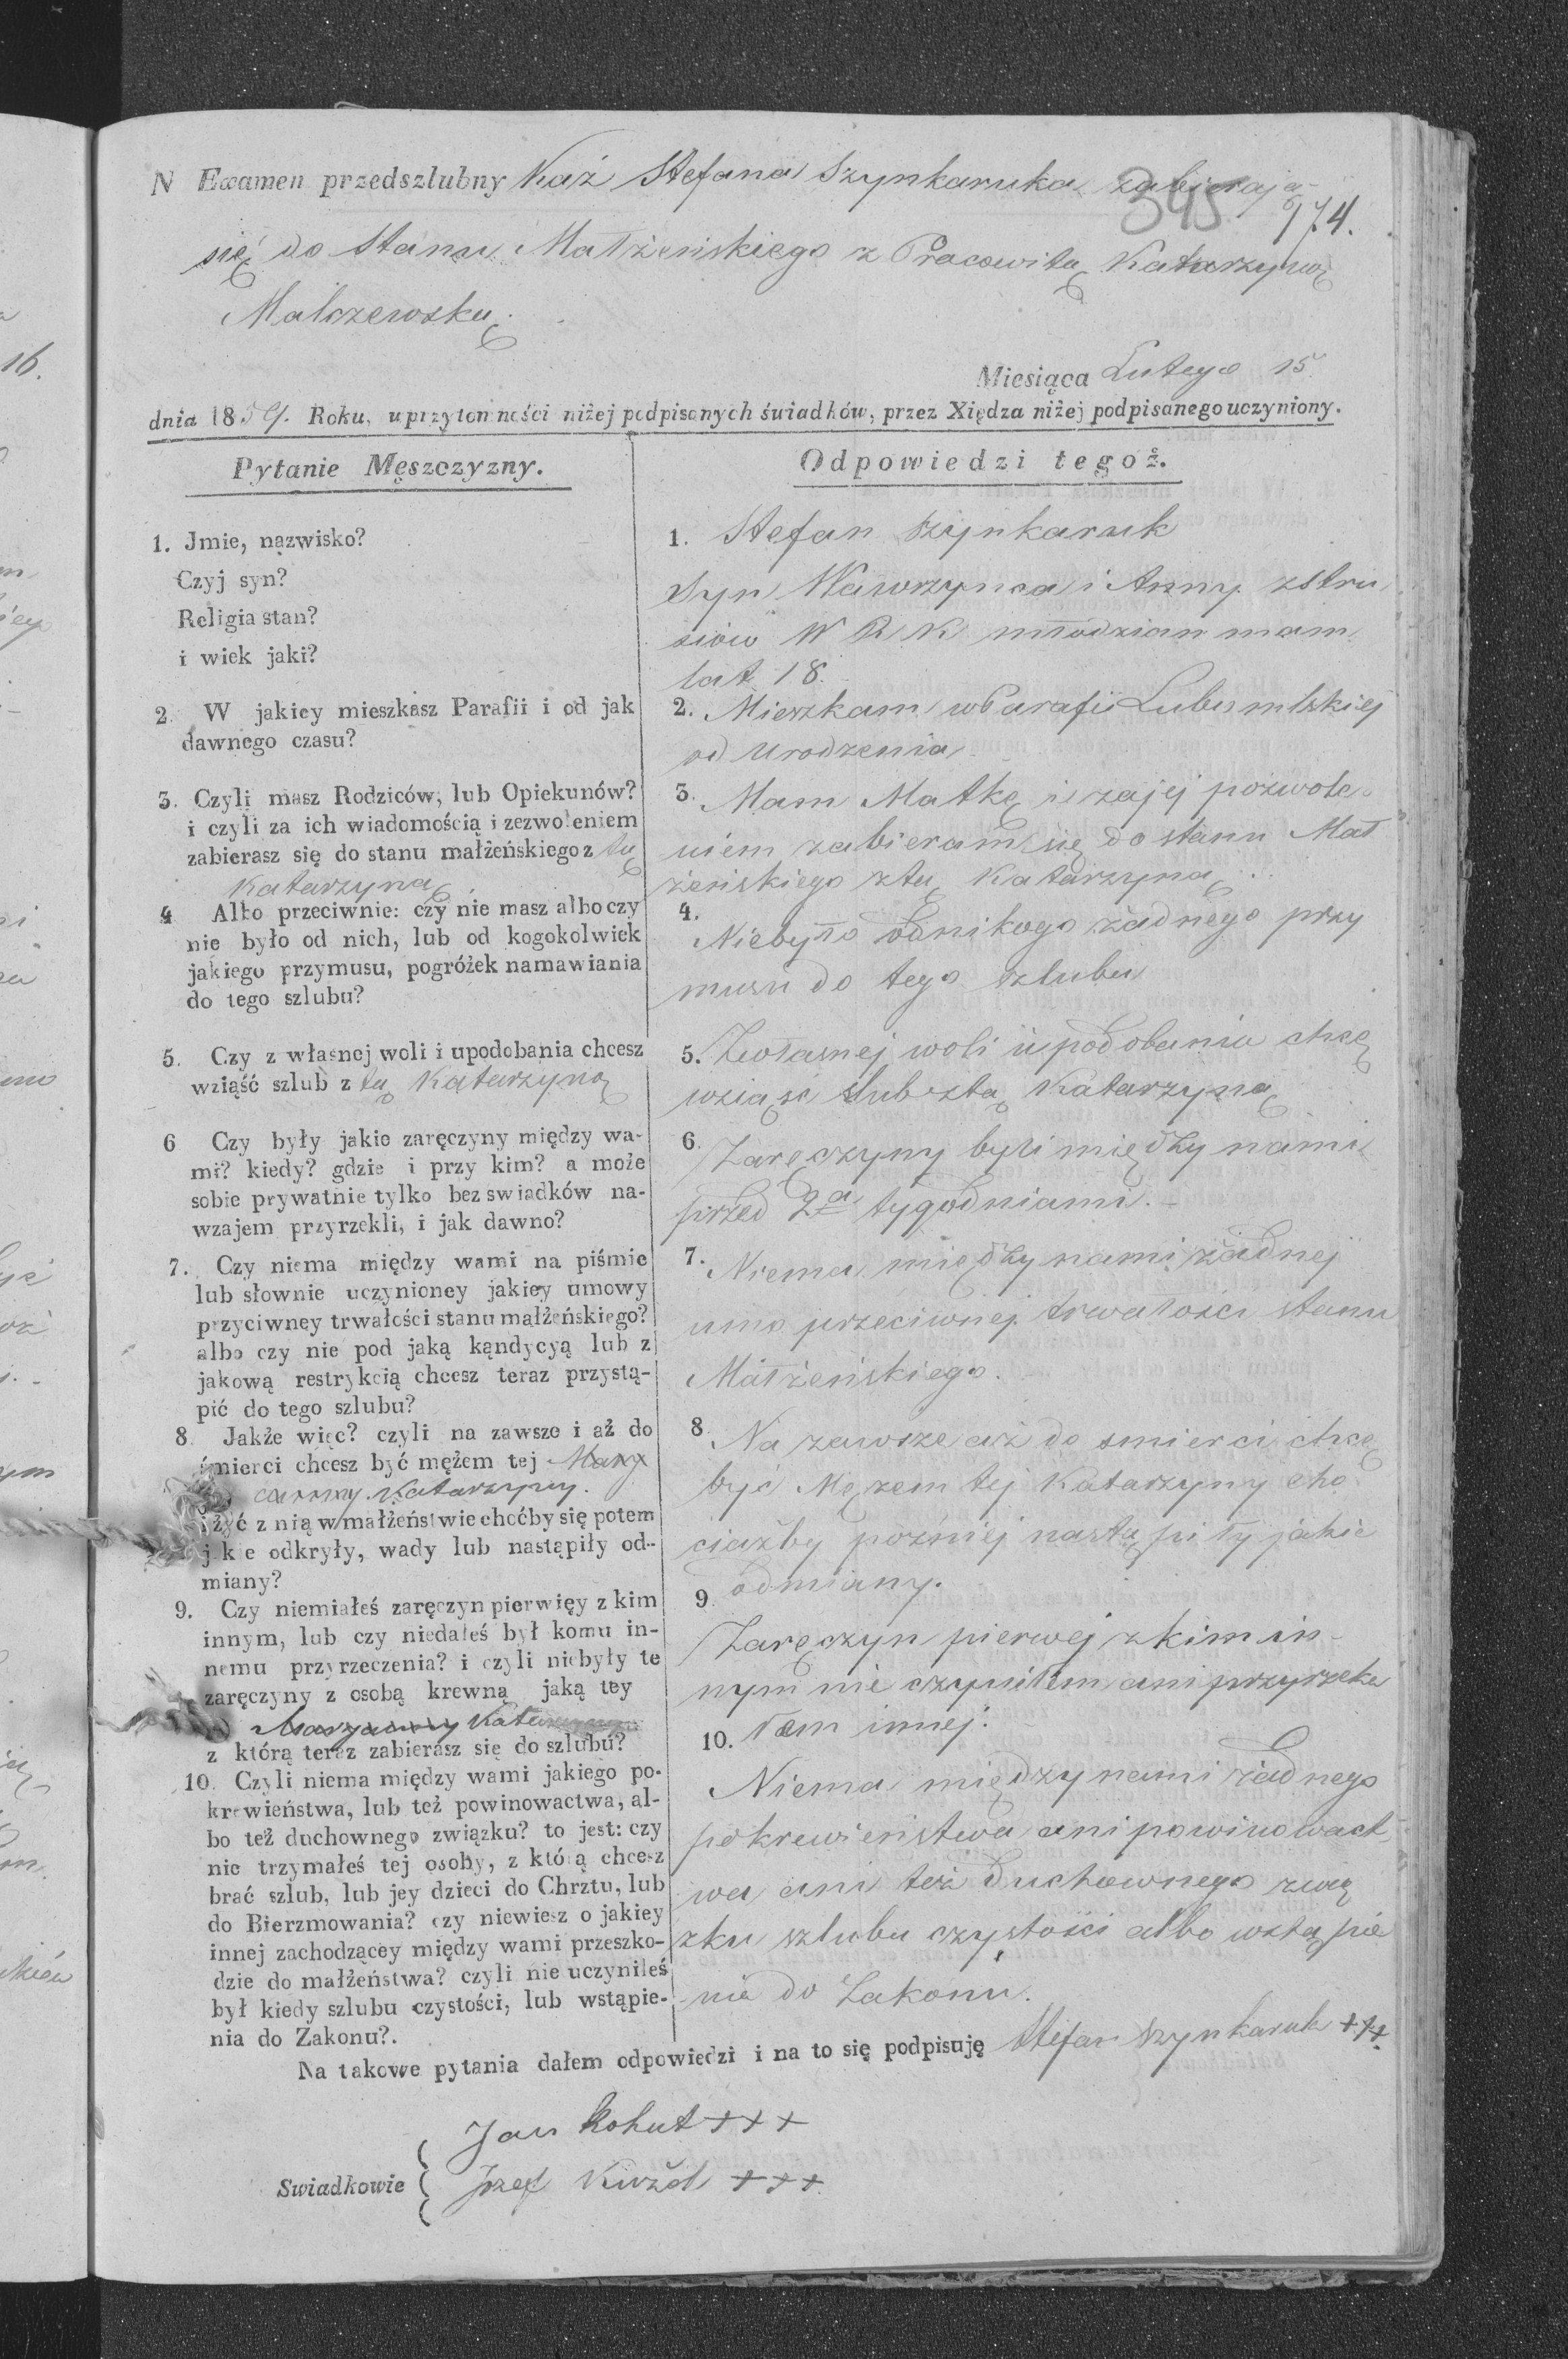 N Examen przedszlubny każ Stefana Szynkaruka zabieraja-
345 174.
się do Stanu Małżeńskiego z Pracowitą Katarzyną
Malczewską.
Miesiąca Lutego 15
dnia 1859. Roku, w przytomności niżej podpisanych świadków, przez Xiędza niżej podpisanego uczyniony.
Pytanie Męszczyzny.
1. Jmie, nazwisko?
Czyj syn?
Religia stan?
i wiek jaki?
2. W jakiey mieszkasz Parafii i od jak
dawnego czasu?
3. Czyli masz Rodziców, lub Opiekunów?
i czyli za ich wiadomością i zezwoleniem
zabierasz się do stanu małżeńskiego z tą
Katarzyną
4 Albo przeciwnie: czy nie masz albo czy
nie było od nich, lub od kogokolwiek
jakiego przymusu, pogróżek namawiania
do tego szlubu?
5. Czy z własnej woli i upodobania chcesz
wziąść szlub z tą Katarzyną
6 Czy były jakie zaręczyny między wa-
mi? kiedy? gdzie i przy kim? a może
sobie prywatnie tylko bez swiadków na-
wzajem przyrzekli, i jak dawno?
7. Czy niema między wami na piśmie
lub słownie uczynioney jakiey umowy
przyciwney trwałości stanu małżeńskiego?
albo czy nie pod jaką kąndycyą lub z
jakową restrykcią chcesz teraz przystą-
pić do tego szlubu?
8. Jakże więc? czyli na zawsze i aż do
śmierci chcesz być mężem tej Mary
Katarzyny.
i żyć z nią w małżeństwie choćby się potem
jakie odkryły, wady lub nastąpiły od-
miany?
9. Czy niemiałeś zaręczyn pierwięy z kim
innym, lub czy niedałeś był komu in-
nemu przyrzeczenia? i czyli niebyły te
zaręczyny z osobą krewną jaką tey
Maryanny
z którą teraz zabierasz się do szlubu?
10. Czyli niema między wami jakiego po-
krewieństwa, lub też powinowactwa, al-
bo też duchownego związku? to jest: czy
nie trzymałeś tej osoby, z którą chcesz
brać szlub, lub jey dzieci do Chrztu, lub
do Bierzmowania? czy niewiesz o jakiey
innej zachodzącey między wami przeszko-
dzie do małżeństwa? czyli nie uczyniłeś
był kiedy szlubu czystości, lub wstąpie-
nia do Zakonu?.
Odpowiedzi tegoż.
1. Stefan Szynkaruk
Syn Wawrzynca i Anny zStru
siów W R K młodzian mam
lat 18.
2. Mieszkam w Parafii Lubomlskiej
od urodzenia
3. Mam Matkę i zajej pozwole-
niem zabieram się do stanu Mał
żeńskiego ztą Katarzyną
4. Niebyło odnikogo żadnego przy
musu do tego szlubu
5. Zwłasnej woli i upodobania chcę
wziąść slub ztą Katarzyną
6. Zaręczyny byli między nami
przed 2a tygodniami.-
7. Niema między nami żadnej
umo przeciwnej trwałości stanu
Małżeńskiego.
8. Na zawsze aż do smierci chcę
być Mężem tej Katarzyny cho
ciażby pózniej nastąpiły jakie
odmiany.
9. Zaręczyn pierwej zkim in-
nym nie czyniłem ani przyrzeka
łem innej.
10. Niema między nami żadnego
pokrewieństwa ani powinowact
wa ani też duchownego zwią
zku szlubu czystości albo wstąpie
nia do Zakonu.
Na takowe pytania dałem odpowiedzi i na to się podpisuję Stefan Szynkaruk +++
Swiadkowie
Jan Kohut +++
Jozef +++